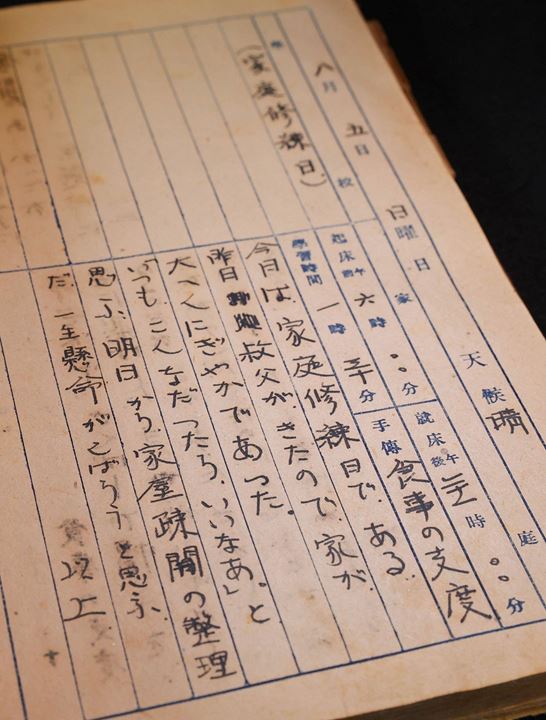 八月五日 日曜日 天候 晴
學校 家庭
(家庭修練日)
起床 午前 六時 〇〇分 就床 午後 時 〇〇分
學習時間 一時 三十分 手傳 食事の支度
今日は、家庭修練日で、ある
昨日 叔父が、きたので、家が
大へんにぎやかであつた。
「いつも、こんなだつたら、いいなあ。」と
思ふ、明日から、家屋疎開の整理
だ、一生懸命がんばらうと思ふ、
以上